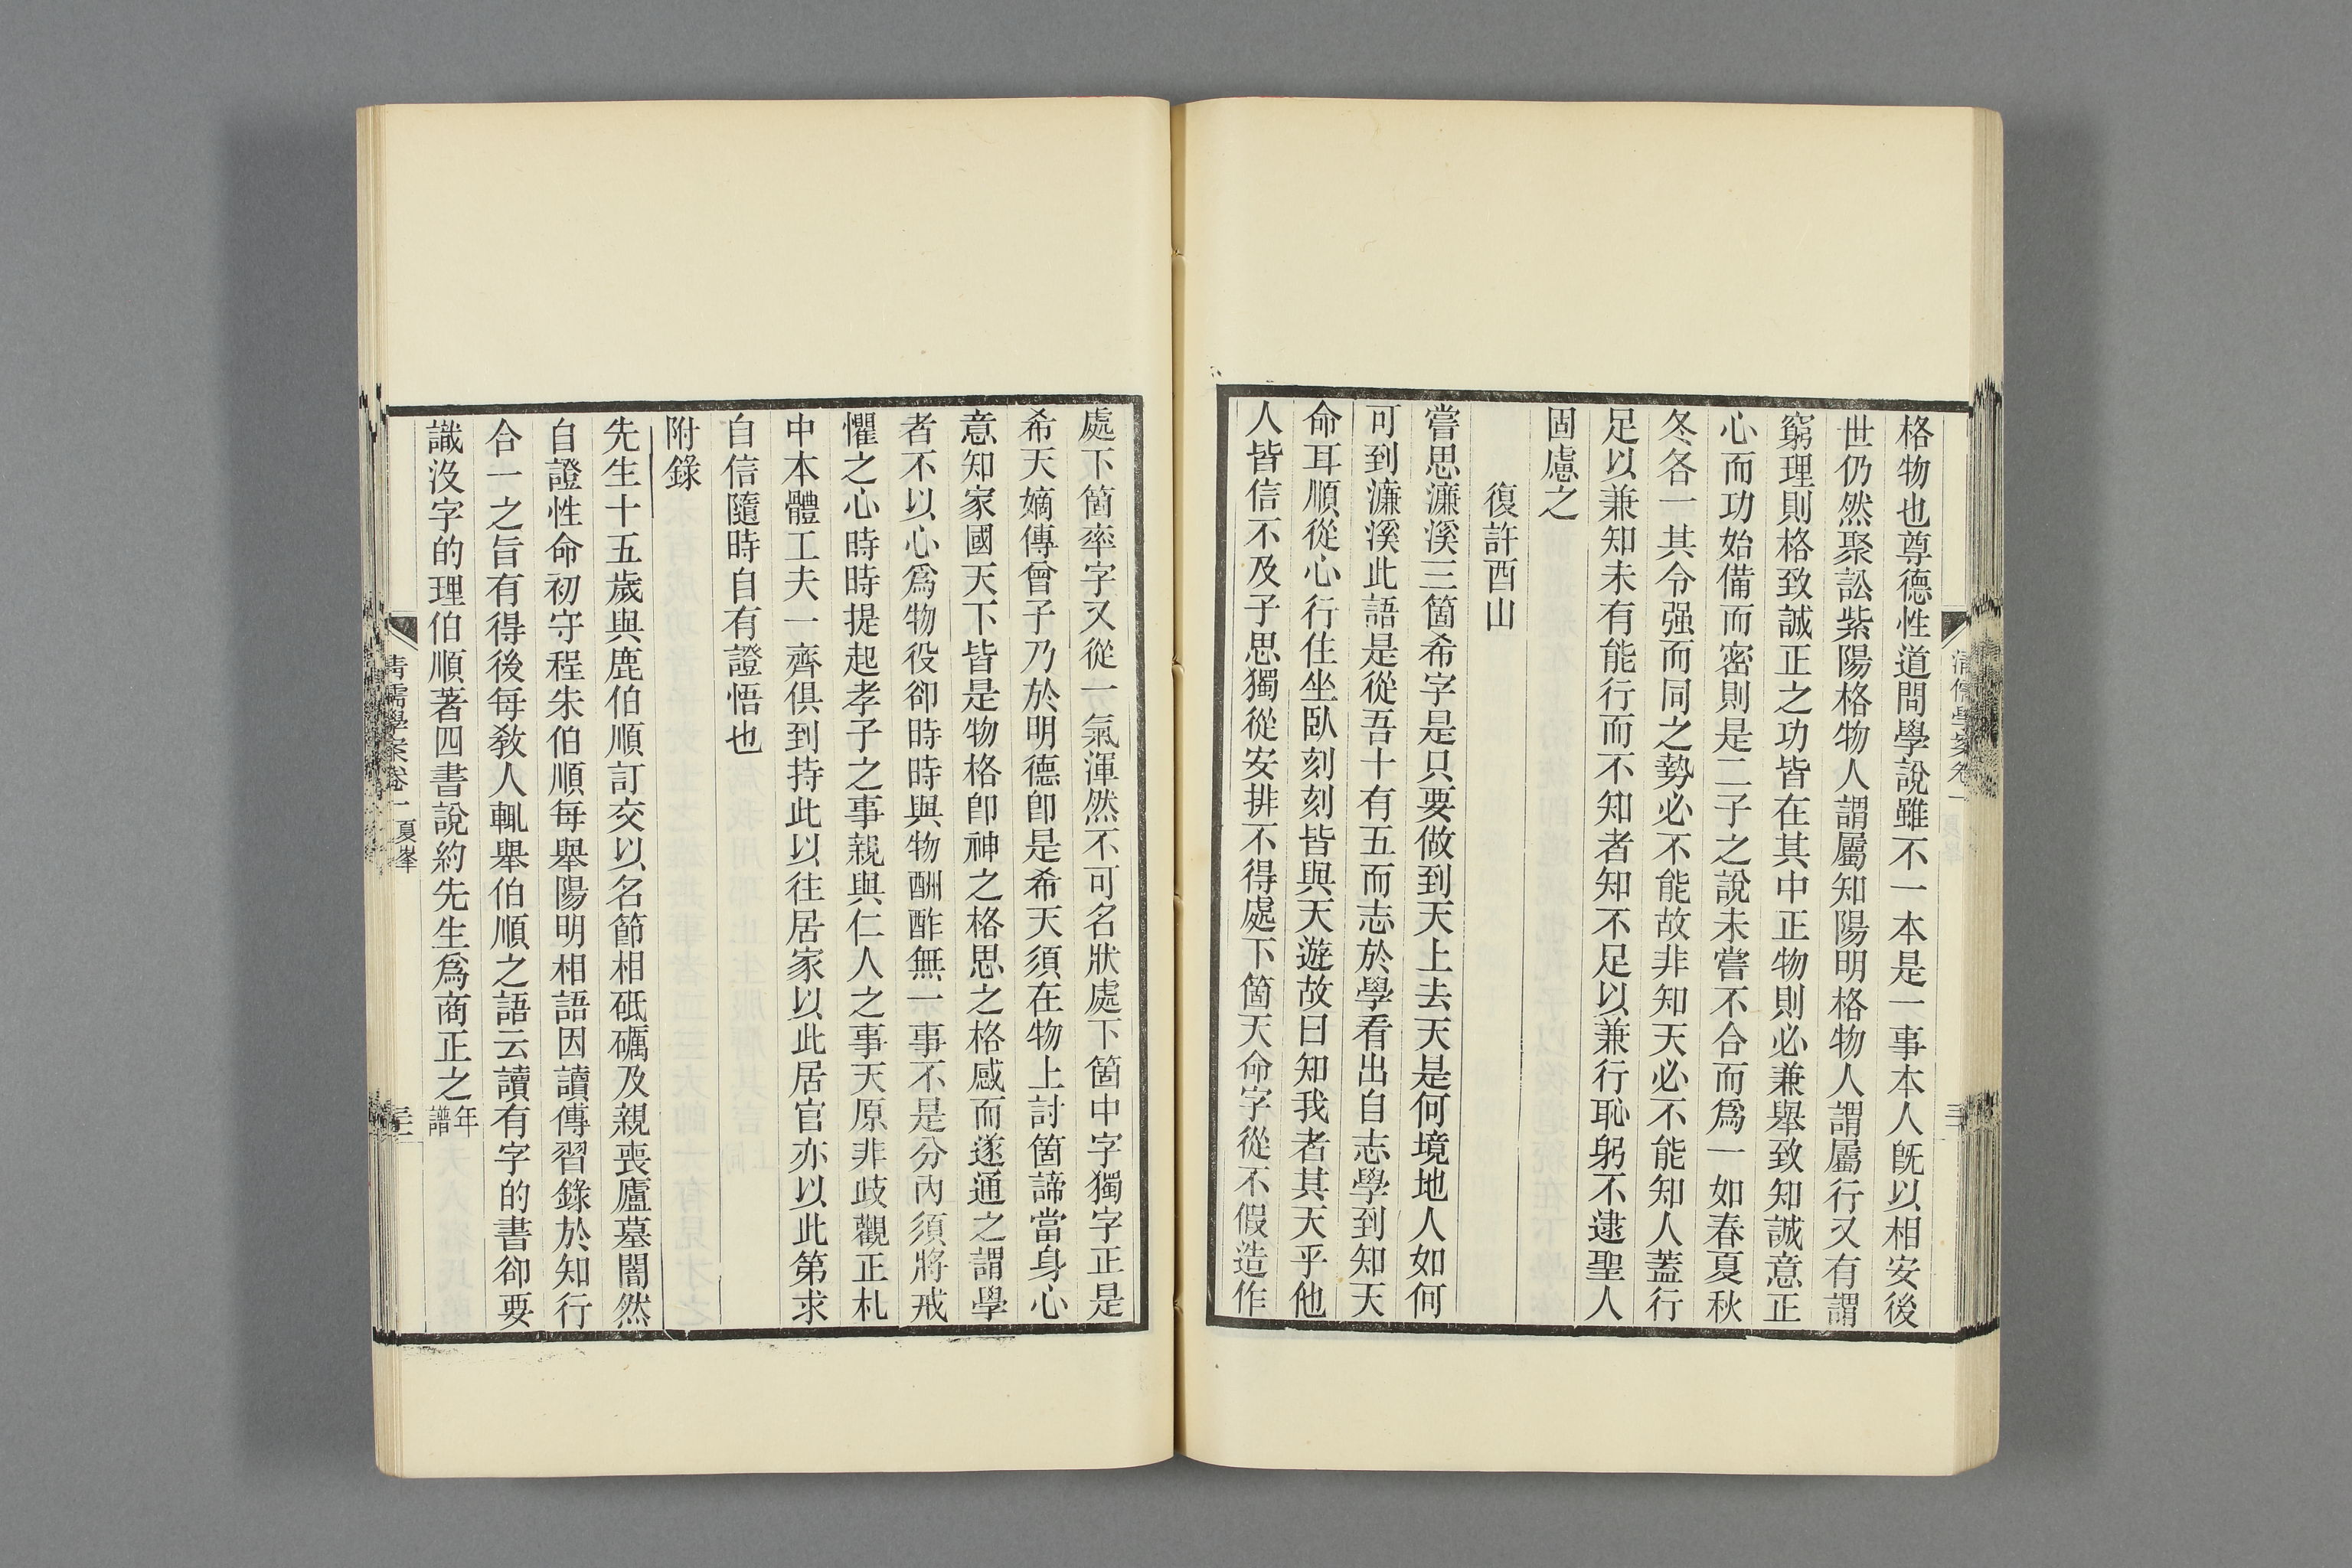 格物也尊德性道問學說雖不一本是一事本人旣以相安後
世仍然聚訟紫陽格物人謂屬知陽明格物人謂屬行又有謂
窮理則格致誠正之功皆在其中正物則必兼舉致知誠意正
心而功始備而密則是二子之說未嘗不合而爲一如春夏秋
冬各一其令强而同之勢必不能故非知天必不能知人蓋行
足以兼知未有能行而不知者知不足以兼行恥躬不逮聖人
固慮之
復許酉山
嘗思濂溪三箇希字是只要做到天上去天是何境地人如何
可到濂溪此語是從吾十有五而志於學看出自志學到知天
命耳順從心行住坐臥刻刻皆與天遊故曰知我者其天乎他
人皆信不及子思獨從安排不得處下箇天命字從不假造作
處下箇率字又從一氣渾然不可名狀處下箇中字獨字正是
希天嫡傳曾子乃於明德卽是希天須在物上討箇諦當身心
意知家國天下皆是物格卽神之格思之格感而遂通之謂學
者不以心爲物役卻時時與物酬酢無一事不是分內須將戒
懼之心時時提起孝子之事親與仁人之事天原非歧觀正札
中本體工夫一齊俱到持此以往居家以此居官亦以此第求
自信隨時自有證悟也
附錄
先生十五歲與鹿伯順訂交以名節相砥礪及親喪廬墓闇然
自證性命初守程朱伯順每舉陽明相語因讀傳習錄於知行
合一之旨有得後每敎人輒舉伯順之語云讀有字的書卻要
識沒字的理伯順著四書說約先生爲商正之年譜
清儒學案卷一 夏峯